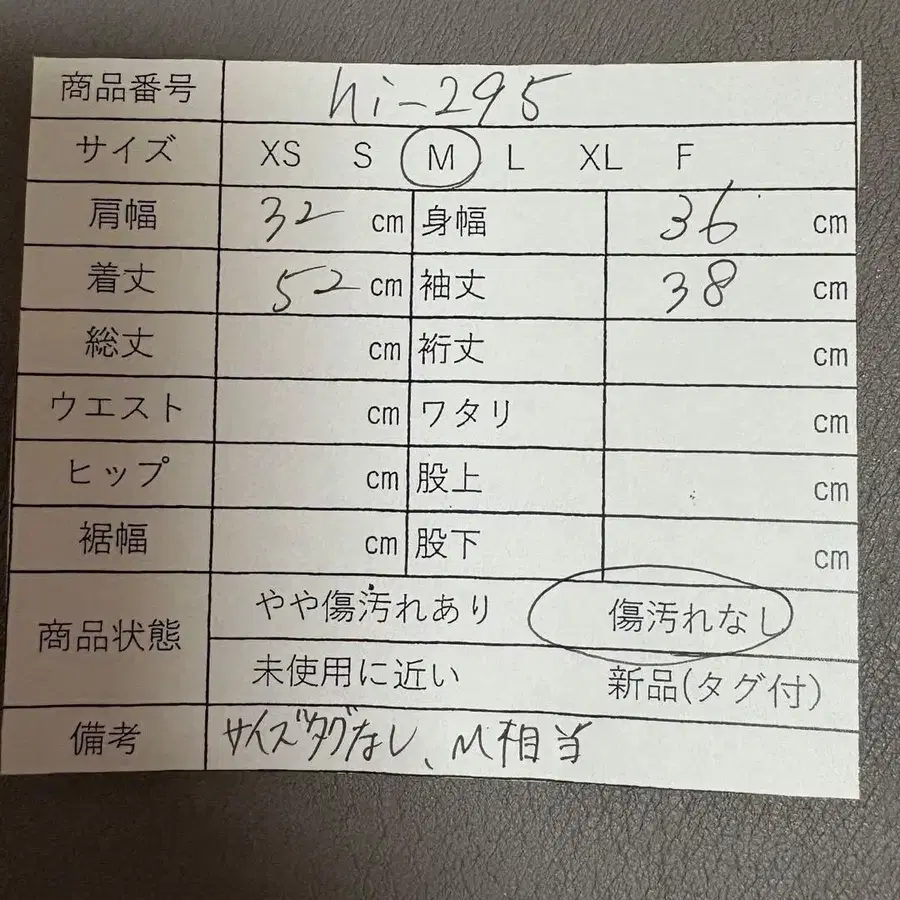 商品番号 hi-295
サイズ XS S M L XL F
肩幅 32 cm 身幅 36 cm
着丈 52 cm 袖丈 38 cm
総丈 cm 裄丈 cm
ウエスト cm ワタリ cm
ヒップ cm 股上 cm
裾幅 cm 股下 cm
商品状態 やや傷汚れあり 傷汚れなし
未使用に近い 新品(タグ付)
備考 サイズタグなし、M相当